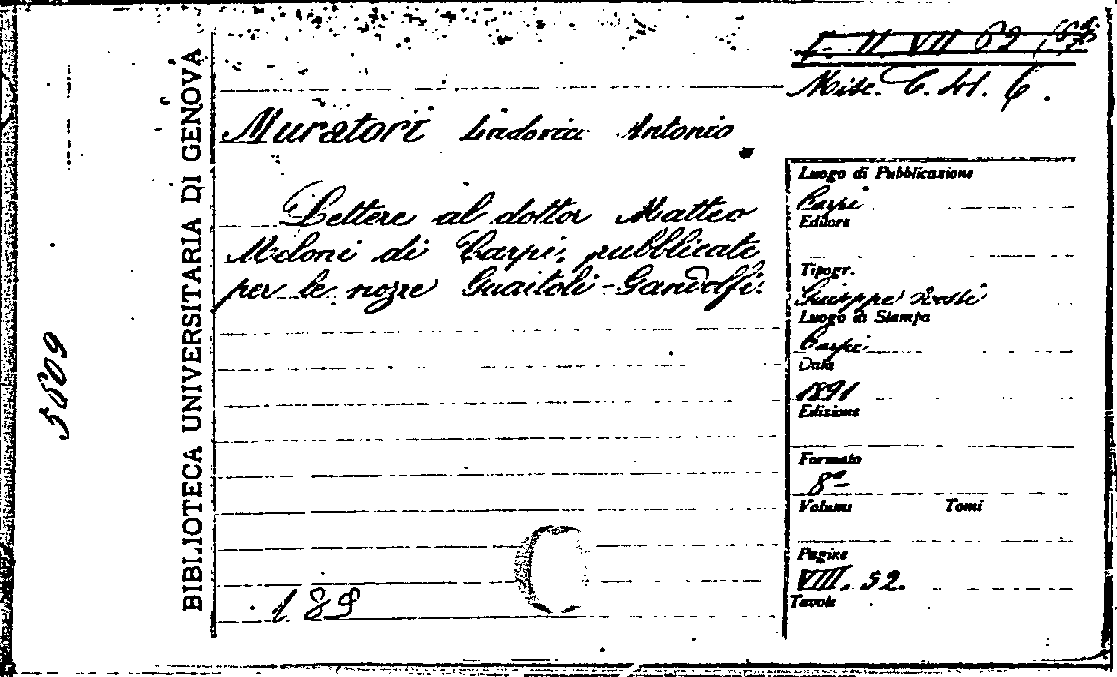 BIBLIOTECA UNIVERSITARIA DI GENOVA
5809
Misc. C. 41. 6.
Muratori Ludovico Antonio
Lettere al dottor Matteo
Meloni di Carpi, pubblicate
per le nozze Guaitoli-Gandolfi.
189
Luogo di Pubblicazione
Carpi
Editore
Tipogr.
Giuseppe Rossi
Luogo di Stampa
Carpi
Data
1891
Edizione
Formato
8°
Volumi Tomi
Pagine
VIII. 52.
Tavole